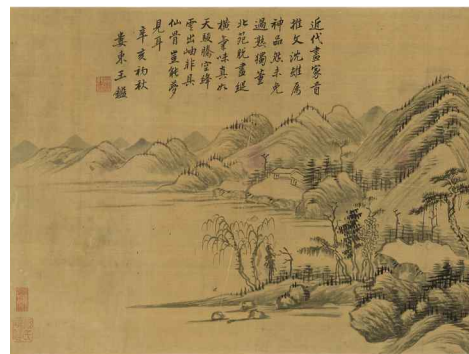 近代畫家首
推文沈雖屬
神品然未免
過熟獨董
北苑脫盡縱
橫氣味真如
天駿騰空絳
雲出岫非具
仙骨豈能夢
見耳
辛亥初秋
婁東王鑑